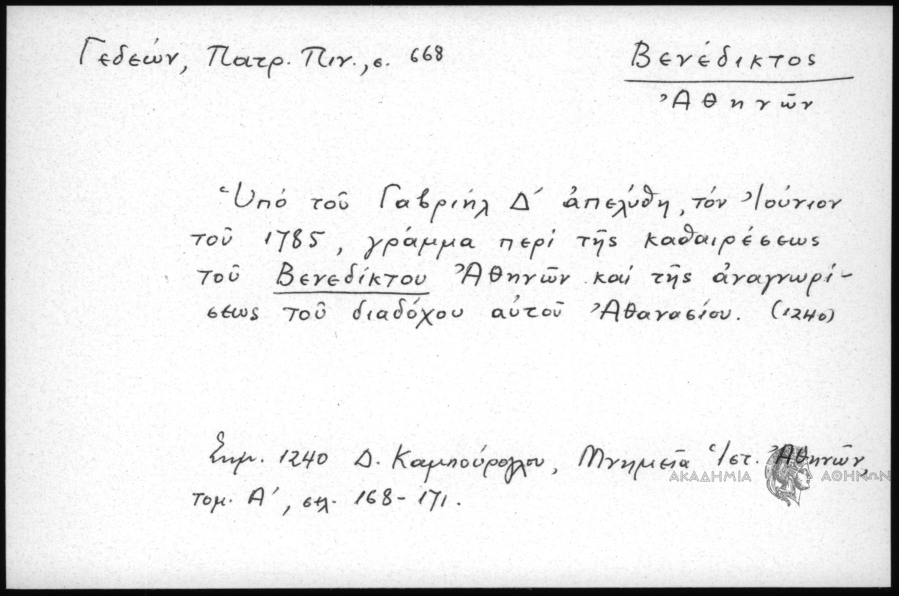 Γεδεών, Πατρ. Πιν., σ. 668
Βενέδικτος
Ἀθηνῶν
Ὑπό τοῦ Γαβριήλ Δ΄ ἀπελύθη, τόν Ἰούνιον
τοῦ 1785, γράμμα περί τῆς καθαιρέσεως
τοῦ Βενεδίκτου Ἀθηνῶν καί τῆς ἀναγνωρί-
σεως τοῦ διαδόχου αὐτοῦ Ἀθανασίου. (1240)
Σημ. 1240 Δ. Καμπούρογλου, Μνημεῖα Ἱστ. Ἀθηνῶν,
τομ. Α΄, σελ. 168-171.
ΑΚΑΔΗΜΙΑ ΑΘΗΝΩΝ